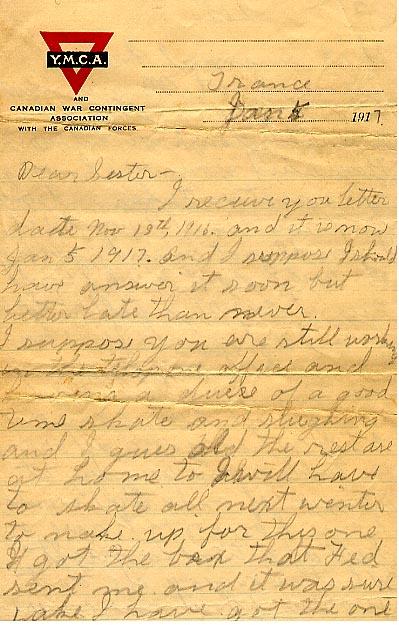 Y.M.C.A.
AND
CANADIAN WAR CONTINGENT
ASSOCIATION
WITH THE CANADIAN FORCES
France
Jan 5 1917.
Dear Sester -
I receive you letter
date Nov 19th, 1916. and it is now
Jan 5 1917. and I suppose I should
have answer it soon but
better late than never.
I suppose you are still working
in the office and
a duice of a good
time skate and sleighing
and I gues all the rest are
at home to I will have
to skate all next winter
to make up for this one
I got the box that Fed
sent me and it was sure
I have got the one